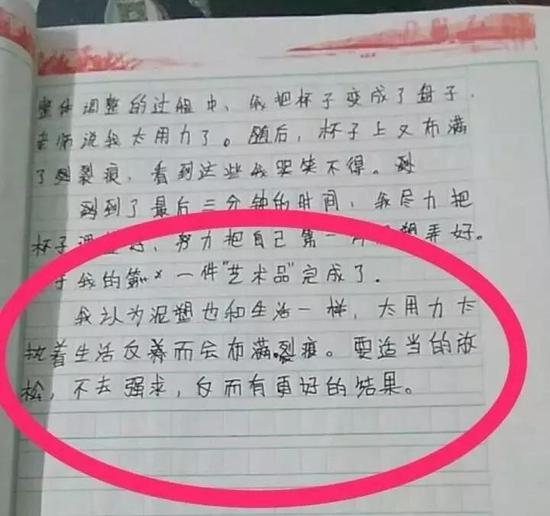 整体调整的过程中，我把杯子变成了盘子，
老师说我太用力了。随后，杯子上又布满
了裂痕，看到这些我哭笑不得。到
到到了最后三分钟的时间，我尽力把
杯子调整好，努力把自己第一件泥塑弄好。
于我的第一件“艺术品”完成了。
我认为泥塑也和生活一样，太用力太
执着生活反着而会布满裂痕。要适当的放
松，不去强求，反而有更好的结果。